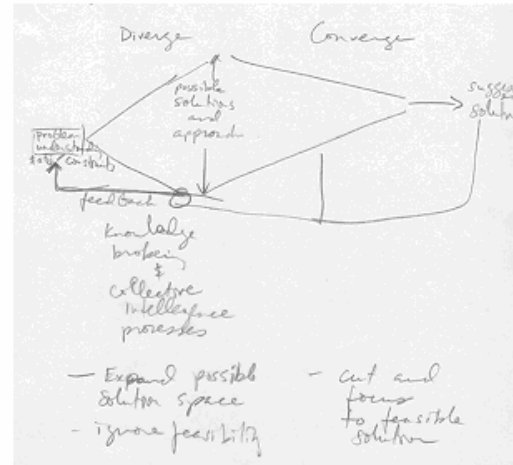 Diverge
Converge
possible
solutions
and
approach
problem
understand
constraints
sugges
solution
feedback
knowledge
brokering
&
collective
intelligence
processes
- Expand possible
solution space
- ignore feasibility
- cut and
focus
to feasible
solution